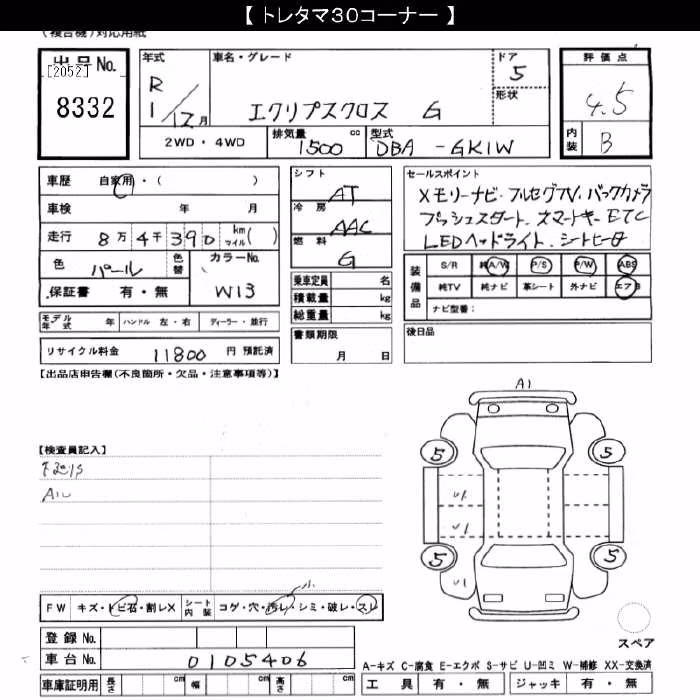 【 トレタマ30コーナー 】
(複合機)対応用紙
出品No.
[2052]
8332
年式
R
1/12月
車名・グレード
エクリプスクロス G
ドア
5
形状
評価点
4.5
内装 B
2WD・4WD
排気量 1500 cc
型式 DBA -GK1W
車歴 自家用・( )
車検 年 月
走行 8万4千390 km マイル( )
色 パール
色替
カラーNo. W13
保証書 有・無
シフト AT
冷房 AAC
燃料 G
セールスポイント
Xモリーナビ・フルセグTV・バックカメラ
プッシュスタート、スマートキーETC
LEDヘッドライト、シートヒータ
乗車定員 名
積載量 kg
総重量 kg
装備品
S/R 純A/W P/S P/W ABS
純TV 純ナビ 革シート 外ナビ エアB
ナビ型番:
モデル年式 年 ハンドル 左・右 ディーラー・並行
書類期限
月 日
後日品
リサイクル料金 11800 円 預託済
【出品店申告欄(不良箇所・欠品・注意事項等)】
A1
【検査員記入】
5
5
5
5
FW キズ・トビ石・割レX シート内装 コゲ・穴・汚レ・シミ・破レ・スレ
小
登録No.
車台No. 0105406
スペア
A-キズ C-腐食 E-エクボ S-サビ U-凹ミ W-補修 XX-交換済
車庫証明用 長さ cm 幅 cm 高さ cm
工具 有・無 ジャッキ 有・無